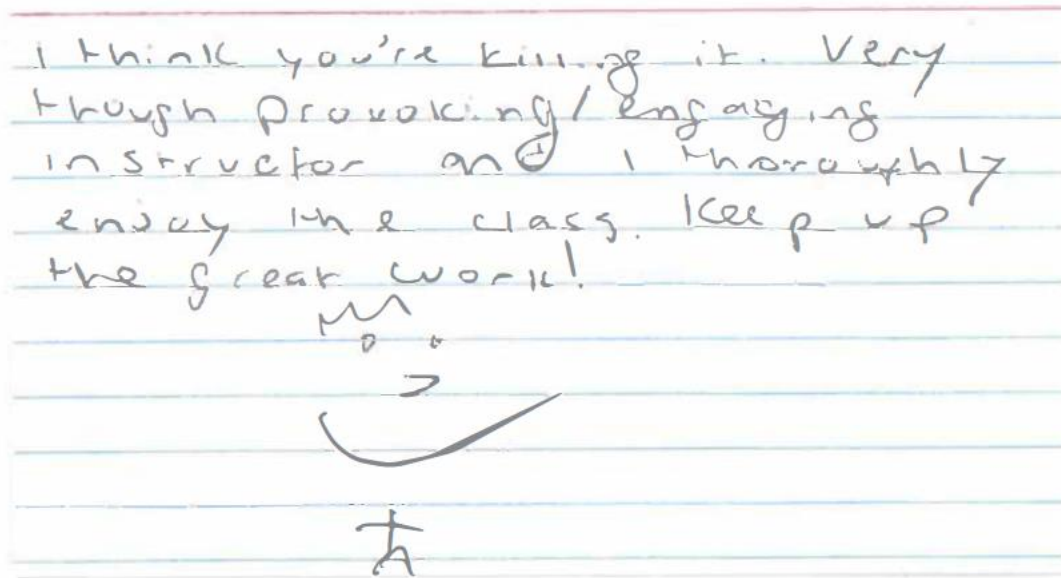 I think you're killing it. Very
though provoking/engaging
instructor and I thoroughly
enjoy the class. Keep up
the great work!